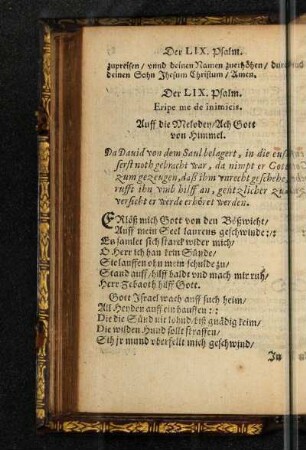 Der LIX. Psalm.
zupreisen / vnnd deinen Namen zuerhöhen /
deinen Sohn Jhesum Christum / Amen.
Der LIX. Psalm.
Eripe me de inimicis.
Auff die Melodey / Ach Gott
von Himmel.
Da Dauid von dem Saul belagert, in die
serst noth gebracht war, da nimpt er Gott
zum gezeugen, daß ihm vnrecht geschehe,
rufft ihn vmb hilff an, gentzlicher
versicht er werde erhöret werden.
ERlöß mich Gott von den Bößwicht /
Auff mein Seel laurens geschwinde :/:
Es samlet sich starck wider mich /
O Herr ich han kein Sünde /
Sie lauffen ohn mein schulde zu /
Stand auff / hilff baldt vnd mach mir ruh /
Herr Zebaoth hilff Gott.
Gott Israel wach auff such heim /
All Heyden auff ein hauffen :/:
Die die Sünd nit lohnd / biß gnädig keim /
Die wilden Hund sollt straffen /
Sih jr mund vberfellt mich geschwind /
In